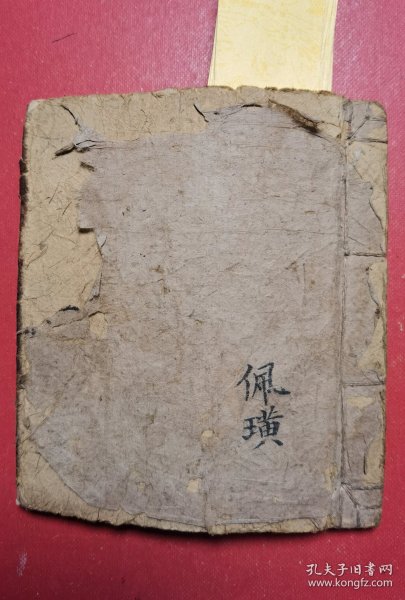 佩
璜
孔夫子旧书网
www.kongfz.com